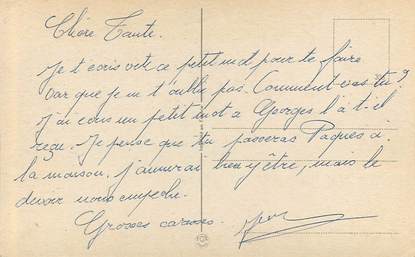 Chère Tante.
Je t'écris vite ce petit mot pour te faire
voir que je ne t'oublie pas. Comment vas-tu?
J'ai écris un petit mot a Georges l'a t-il
reçu. Je pense que tu passeras Paques a
la maison. J'aimerai bien y être, mais le
devoir nous empeche.
Grosses caresses.